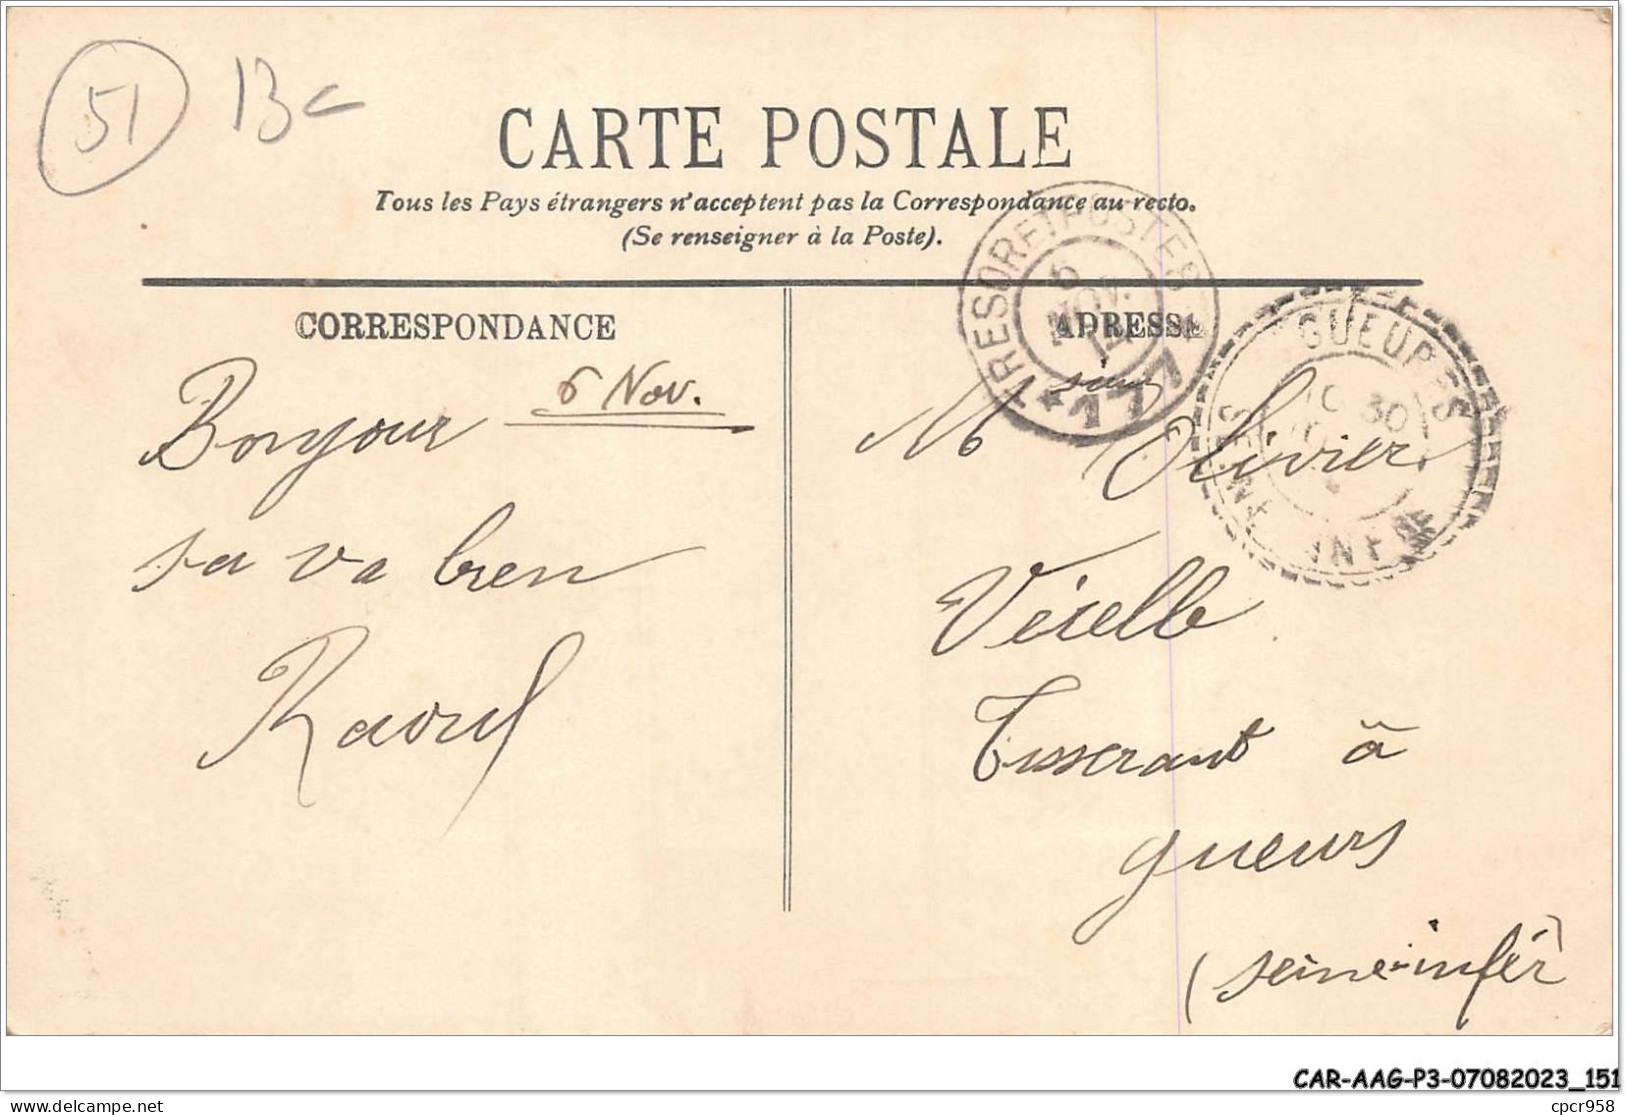 51 13c
CARTE POSTALE
Tous les Pays étrangers n'acceptent pas la Correspondance au recto.
(Se renseigner à la Poste).
CORRESPONDANCE
6 Nov.
Bonjour
sa va bien
Raoul
ADRESSE
Msieur Olivier
Vérelle
Tisserant à
gueurs
(seine-infér)
TRESOR ET POSTES
5
NOV.
14
* 17
GUEURES
10 30
SEINE INFRE
CAR-AAG-P3-07082023_151
delcampe.net
cpcr958